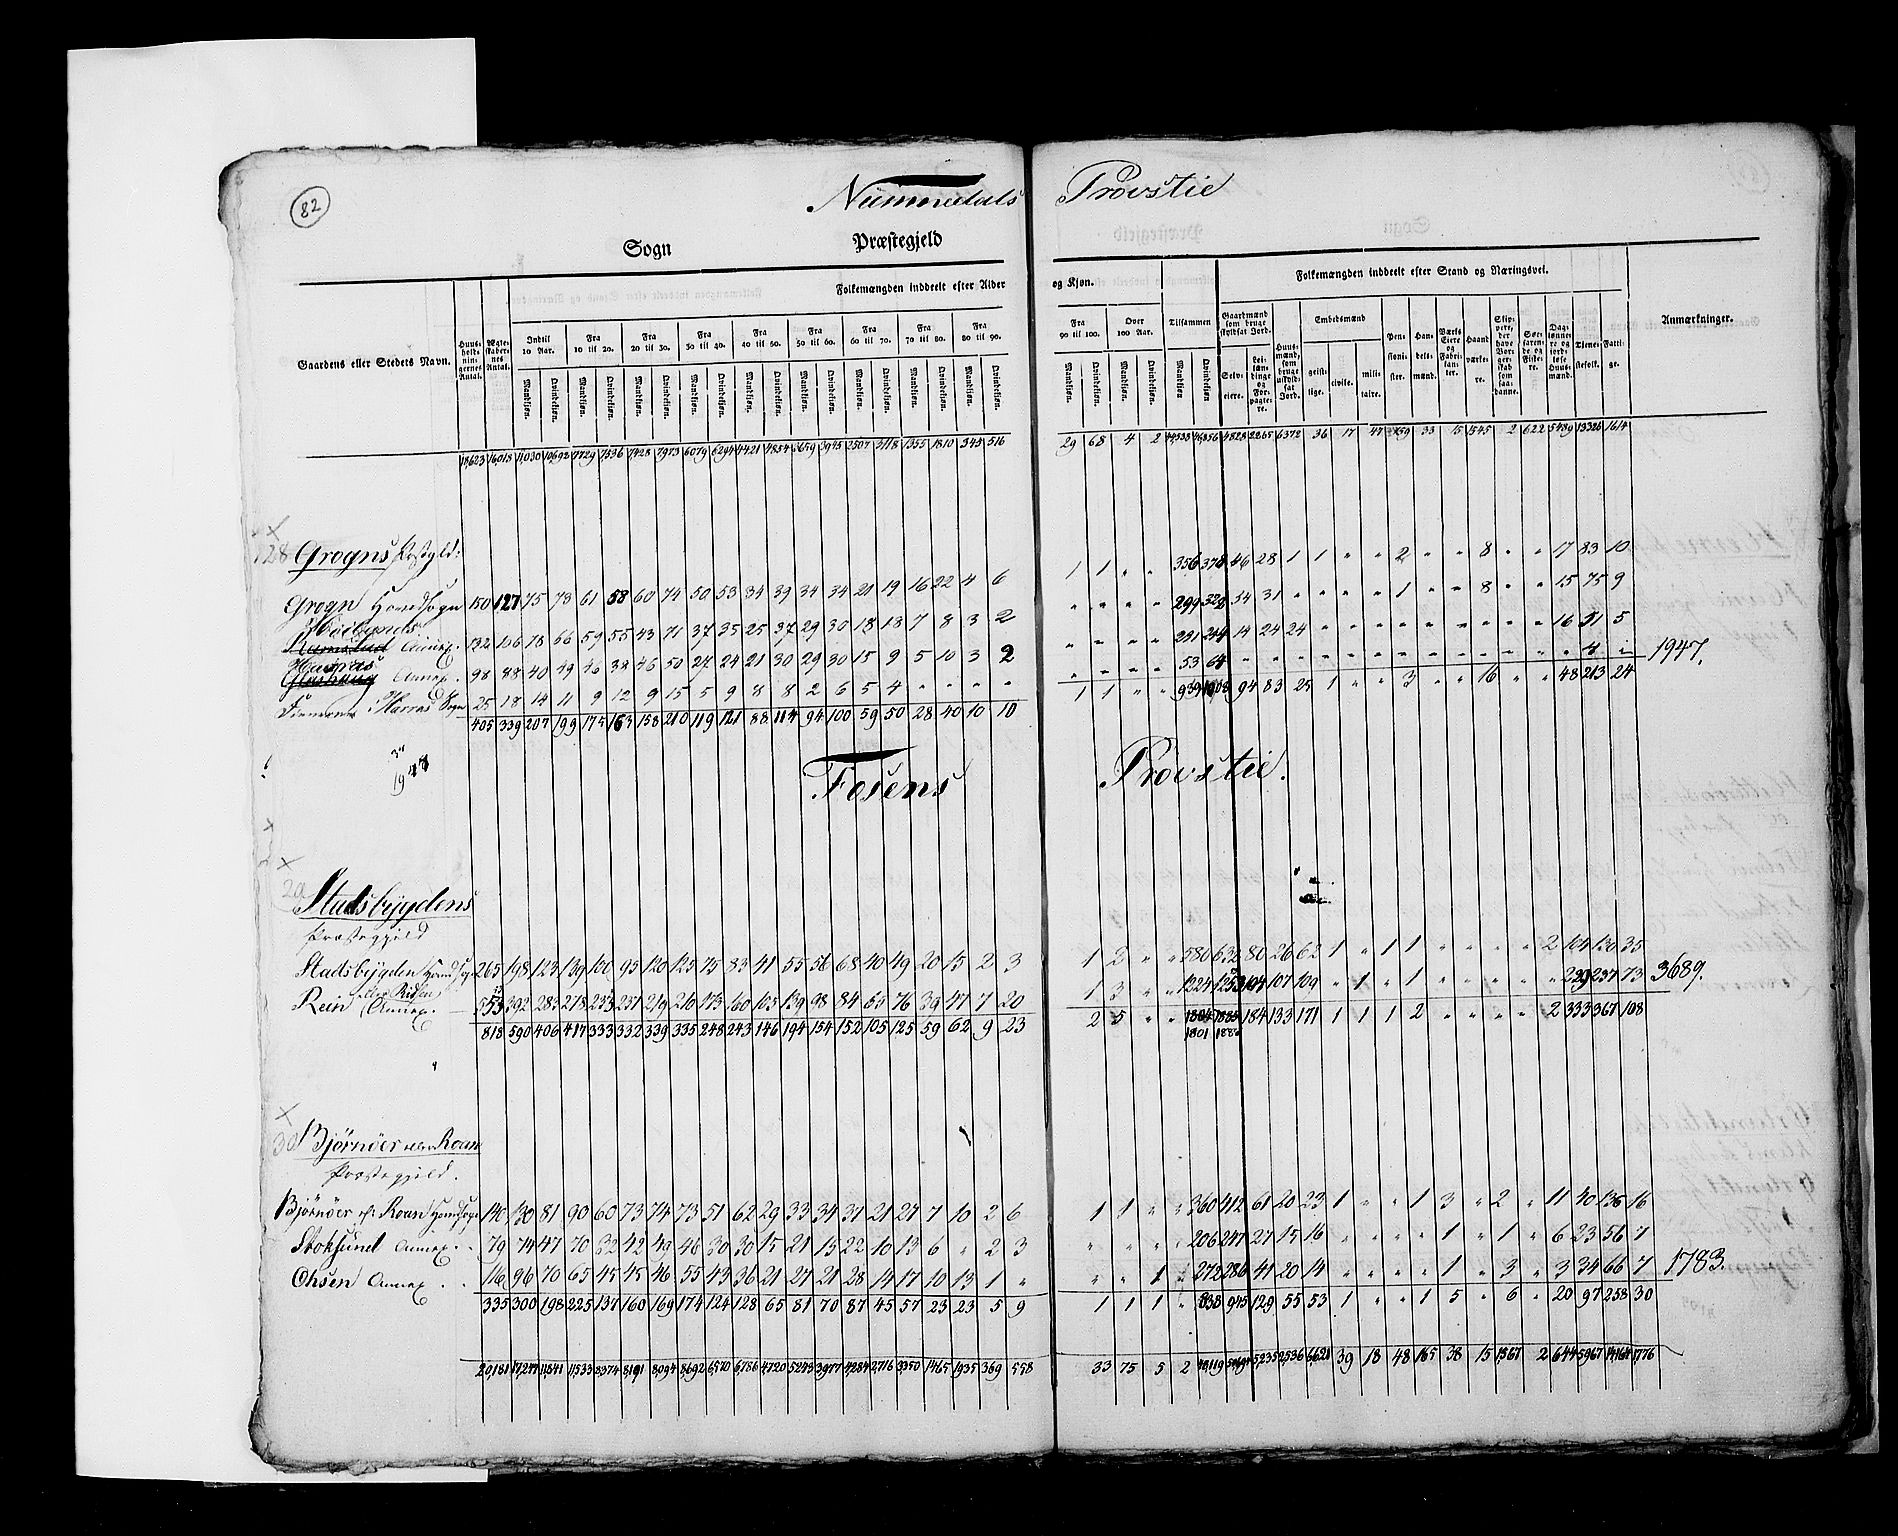 82
Nummedals Provstie
Sogn Præstegjeld
Folkemængden inddeelt efter Alder og Kjøn. Folkemængden inddeelt efter Stand og Næringsvei.
Gaardens eller Stedets Navn. Huusholdningernes Antal. Ægteskabernes Antal. Indtil 10 Aar. Fra 10 til 20. Fra 20 til 30. Fra 30 til 40. Fra 40 til 50. Fra 50 til 60. Fra 60 til 70. Fra 70 til 80. Fra 80 til 90. Fra 90 til 100. Over 100 Aar. Tilsammen Gaardmænd som bruge skyldsat Jord. Huusmænd, som bruge uskyldsat Jord. Embedsmænd Pensionister. Handelsmænd. Værks Eiere og Fabrikanter. Haandværkere. Skippere, der have Borgerskab som saadanne. Søefarende og Fiskere. Dagslønnere og jordløse Huusmænd. Tjenestefolk. Fattige. Anmærkninger.
Mandkjøn. Qvindekjøn. Mandkjøn. Qvindekjøn. Mandkjøn. Qvindekjøn. Mandkjøn. Qvindekjøn. Mandkjøn. Qvindekjøn. Mandkjøn. Qvindekjøn. Mandkjøn. Qvindekjøn. Mandkjøn. Qvindekjøn. Mandkjøn. Qvindekjøn. Mandkjøn. Qvindekjøn. Mandkjøn. Qvindekjøn. Mandkjøn. Qvindekjøn Selveiere. Leilændinge og Forpagtere. geistlige. civile. militaire.
18623 16,018 11,030 10692 7729 7536 7428 7973 6079 6294 4421 4854 3659 3945 2507 3118 1355 1810 345 516 29 68 4 2 44,538 46856 4828 2265 6372 36 17 47 159 33 15 1545 2 622 5489 13326 1614
28 Grogns Præstgld:
Grogn Hovedsogn 150 127 75 73 61 58 60 74 50 53 34 39 34 34 21 19 16 22 4 6 1 1 " " 356 378 46 28 1 1 " " 2 " " 8 " " 17 83 10
Høilands Annex. 132 106 78 66 59 55 43 71 37 35 25 37 29 30 18 13 7 8 3 2 " " " " 299 328 34 31 " " " " 1 " " 8 " " 15 75 9
Harras Annex. 98 88 40 49 46 38 46 50 27 24 21 30 29 30 15 9 5 10 3 2 " " " " 231 244 14 24 24 " " " " " " " " " 16 51 5
Finnerne i Harras Sogn 25 18 14 11 9 12 9 15 5 9 8 8 2 6 5 4 " " " " " " " " 53 64 " " " " " " " " " " " " " 4 "
405 339 207 199 175 163 158 210 119 121 88 114 94 100 59 50 28 40 10 10 1 1 " " 939 1008 94 83 25 1 " " 3 " " 16 " " 48 213 24 1947.
Fosens Provstie.
29 Stadsbygdens
Præstegjeld
Stadsbygden Hovedsogn 265 198 123 139 100 95 120 125 75 83 41 55 56 68 40 49 20 15 2 3 1 2 " " 580 632 80 26 62 1 " 1 1 " " " " 2 104 130 35
Rein eller Rissen Annex. 553 392 283 278 233 237 219 210 173 160 105 139 98 84 65 76 39 47 7 20 1 3 " " 1224 1253 104 107 109 " 1 " 1 " " " " " 229 237 73 3689.
818 590 406 417 333 332 339 335 248 243 146 194 154 152 105 125 59 62 9 23 2 5 " " 1804 1885 184 133 171 1 1 1 2 " " " " 2 333 367 108
30 Bjørnøer eller Roan
Præstegjeld.
Bjørnøer eller Roan Hovedsogn 140 130 81 90 60 73 74 73 51 62 29 33 34 37 21 27 7 10 2 6 1 1 " " 360 412 61 20 23 1 " " 1 3 " 2 " 11 40 136 16
Stoksund Annex. 79 74 47 70 32 42 49 46 30 30 15 21 15 22 10 13 6 " 2 3 " " " " 206 247 27 15 16 " " " " 1 " 1 " 6 23 56 7
Ohsen Annex. 116 96 70 65 45 45 46 55 43 36 21 27 21 28 14 17 10 13 1 " " " 1 " 272 286 41 20 14 " " " " 1 " 3 " 3 34 66 7 1783.
335 300 198 225 137 160 169 174 124 128 65 81 70 87 45 57 23 23 5 9 1 1 1 " 838 945 129 55 53 1 " " 1 5 " 6 " 20 97 258 30
20,181 17,247 11,841 11533 8374 8191 8094 8692 6570 6786 4720 5243 3977 4284 2716 3350 1465 1935 369 558 33 75 5 2 48119 50694 5235 2,536 6,621 39 18 48 165 38 15 1567 2 644 5967 14,164 1776